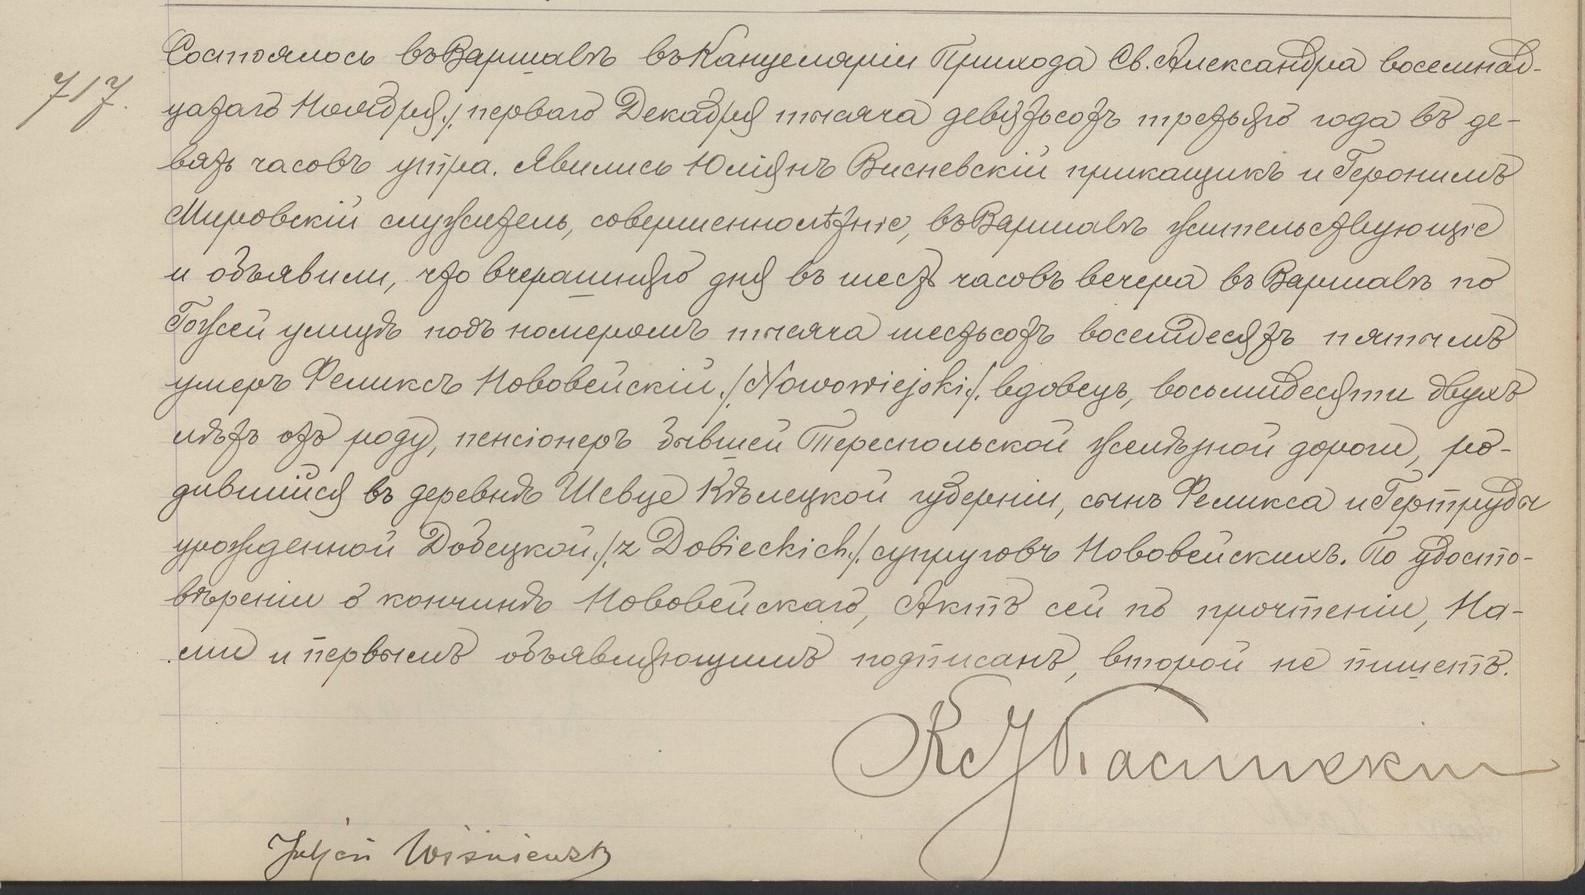 717.
Состоялось въ Варшавѣ въ Канцеляріи Прихода Св. Александра восемнад-
цатаго Ноября /: перваго Декабря тысяча девятьсотъ третьяго года въ де-
вять часовъ утра. Явились Юліянъ Висневскій прикащикъ и Геронимъ
Мировскій служитель, совершеннолѣтніе, въ Варшавѣ жительствующіе
и объявили, что вчерашняго дня въ шесть часовъ вечера въ Варшавѣ по
Гожей улицѣ подъ номеромъ тысяча шестьсотъ восемдесятъ пятымъ
умеръ Феликсъ Нововейскій /: Nowowiejski :/ вдовецъ, восьмидесяти двухъ
лѣтъ отъ роду, пенсіонеръ бывшей Тереспольской желѣзной дороги, ро-
дившійся въ деревнѣ Шевце Кѣлецкой губерніи, сынъ Феликса и Гертруды
урожденной Добецкой /: z Dobieckich :/ супруговъ Нововейскихъ. По удосто-
вѣреніи о кончинѣ Нововейскаго, Актъ сей по прочтеніи, На-
ми и первымъ объявляющимъ подписанъ, второй не пишетъ.
Julján Wiśniewski